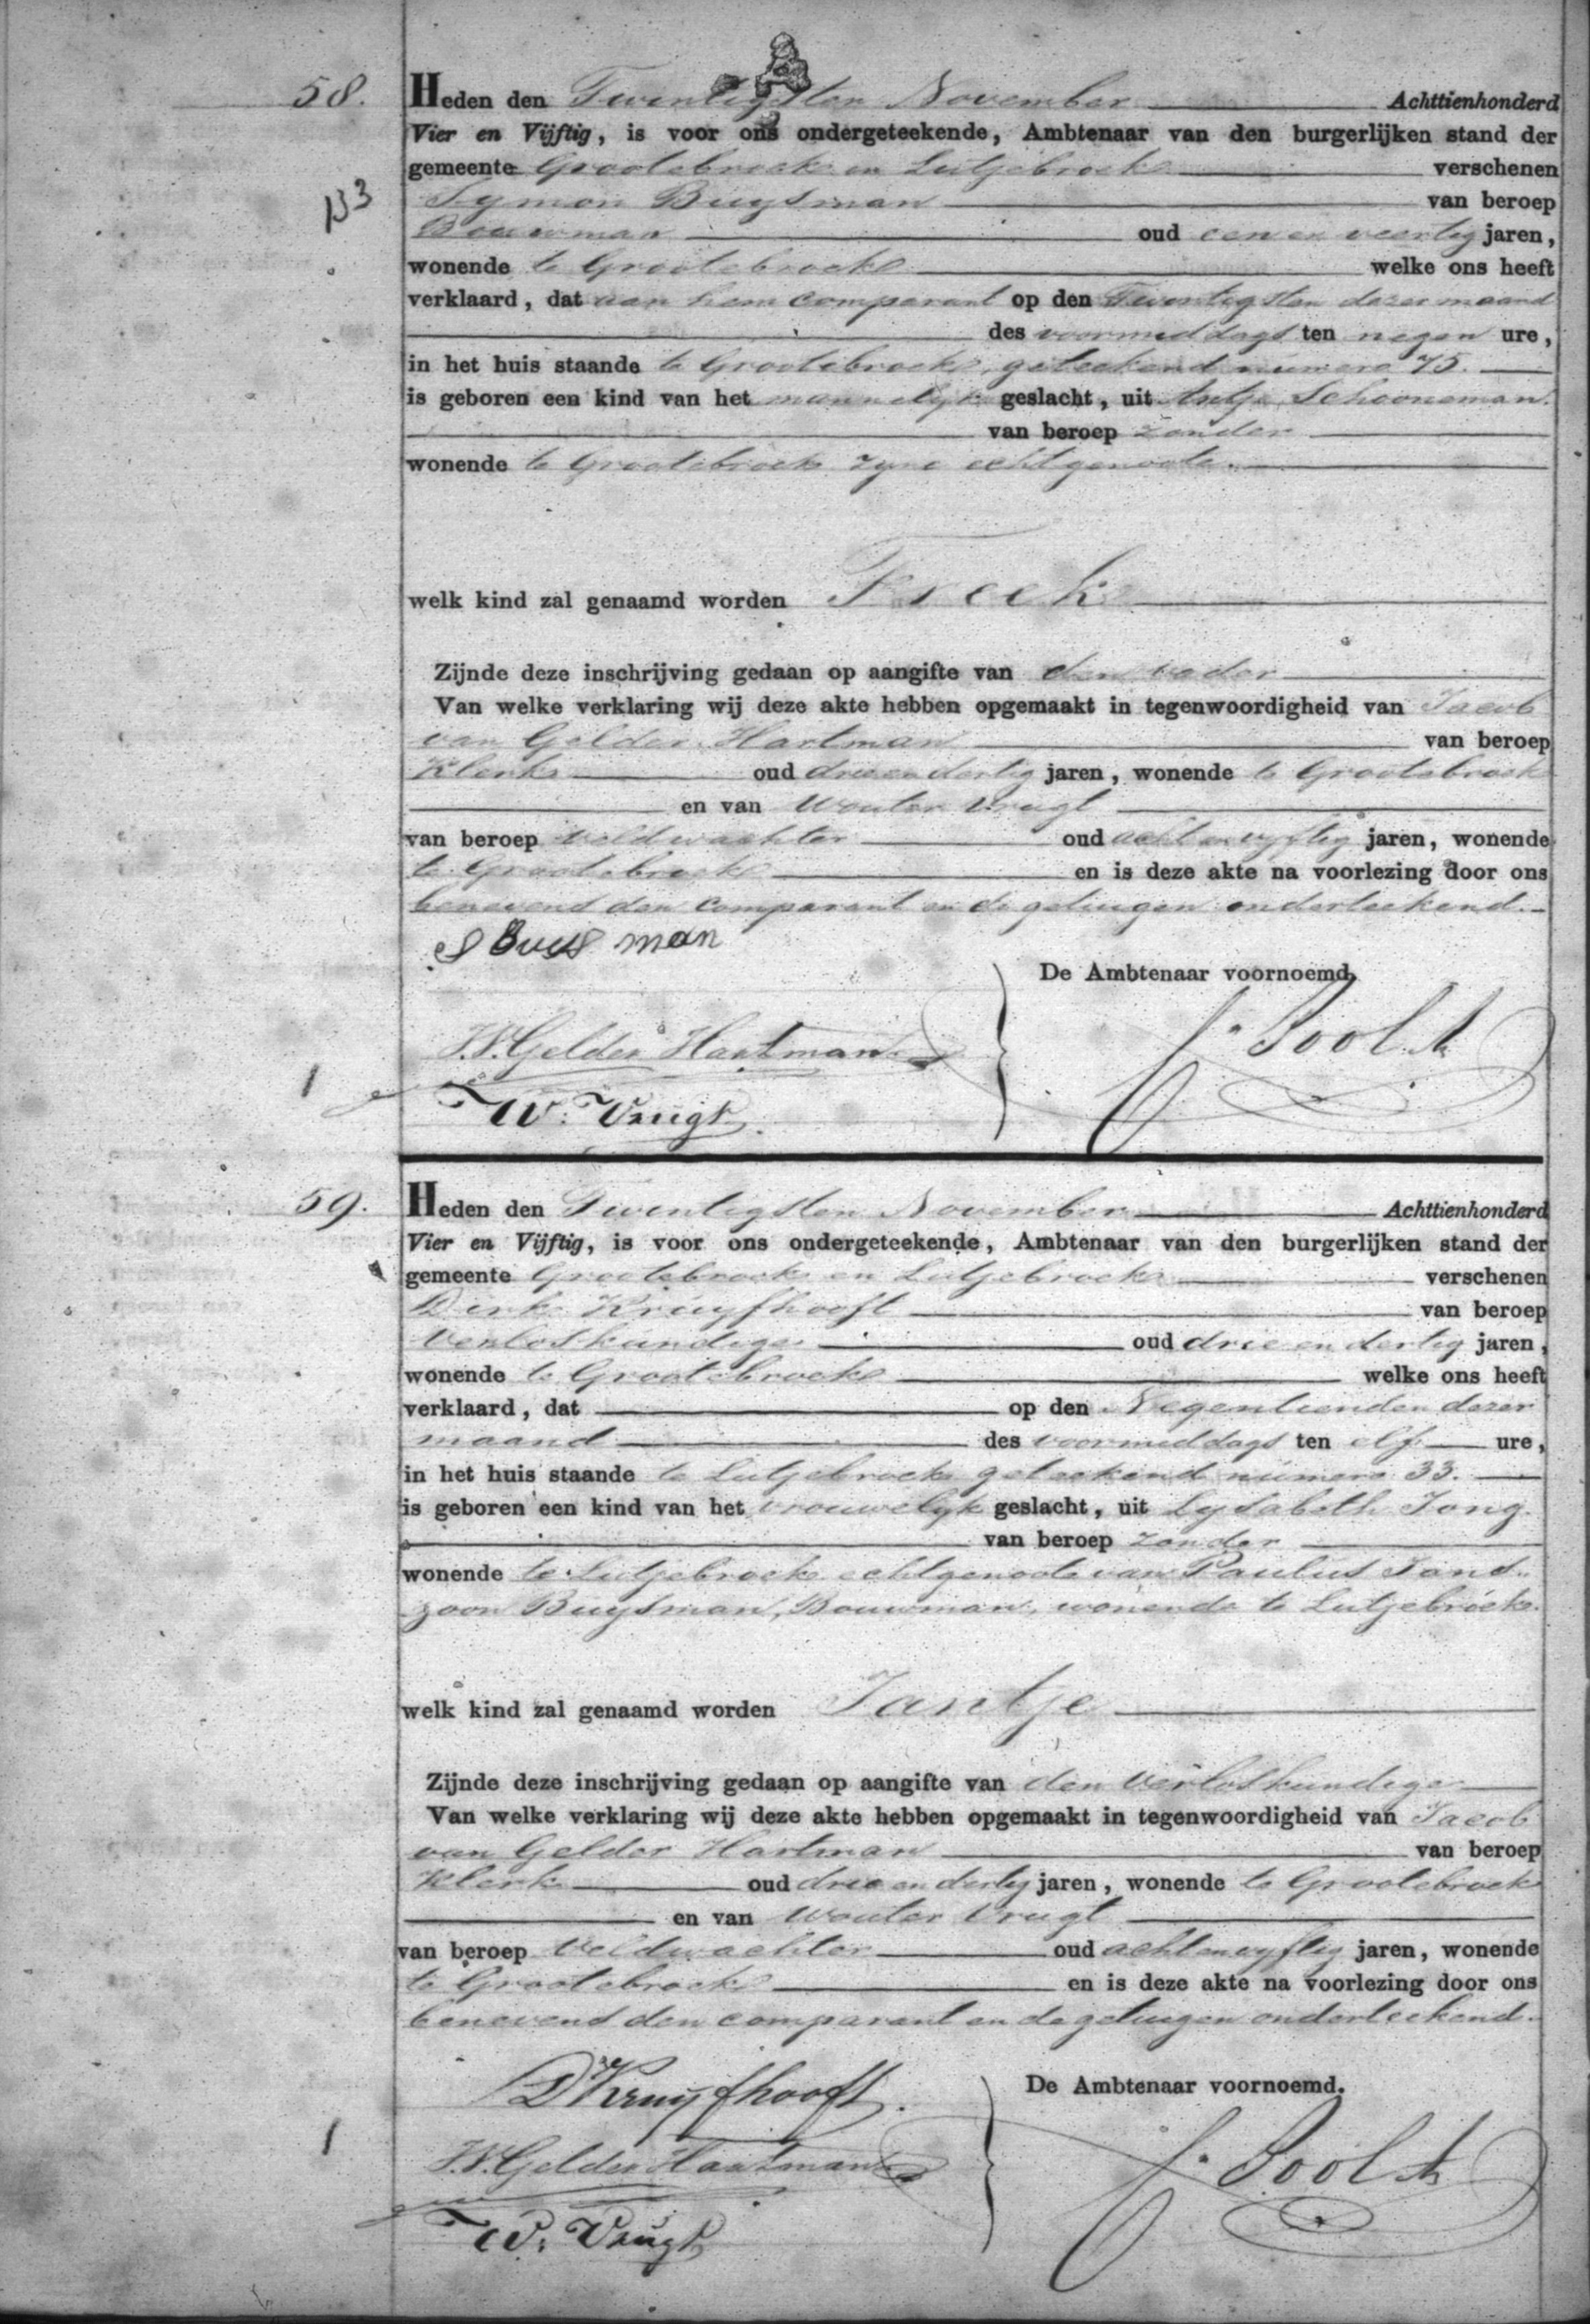 58.
Heden den Twintigsten November Achttienhonderd
Vier en Vijftig, is voor ons ondergeteekende, Ambtenaar van den burgerlijken stand der
gemeente Grootebroek en Lutjebroek verschenen
133
Symon Buysman van beroep
Bouwman oud een en veertig jaren,
wonende te Grootebroek welke ons heeft
verklaard, dat aan hem comparant op den Twintigsten dezer maand
des voormiddags ten negen ure,
in het huis staande te Grootebroek, geteekend numero 75.
is geboren een kind van het mannelijk geslacht, uit Antje Schooneman.
van beroep zonder
wonende te Grootebroek zyne echtgenoote.
welk kind zal genaamd worden Freek
Zijnde deze inschrijving gedaan op aangifte van den vader
Van welke verklaring wij deze akte hebben opgemaakt in tegenwoordigheid van Jacob
van Gelder Hartman van beroep
Klerk oud drie en dertig jaren, wonende te Grootebroek
en van Wouter Vrugt
van beroep Veldwachter oud acht en vyftig jaren, wonende
te Grootebroek en is deze akte na voorlezing door ons
benevens den comparant en de getuigen onderteekend.
S Buysman
De Ambtenaar voornoemd,
J.V. Gelder Hartman
W. Vrugt
1
59.
Heden den Twintigsten November Achttienhonderd
Vier en Vijftig, is voor ons ondergeteekende, Ambtenaar van den burgerlijken stand der
gemeente Grootebroek en Lutjebroek verschenen
Dirk Kruyfhooft van beroep
Verloskundige oud drie en dertig jaren,
wonende te Grootebroek welke ons heeft
verklaard, dat op den Negentienden dezer
maand des voormiddags ten elf ure,
in het huis staande te Lutjebroek geteekend numero 33.
is geboren een kind van het vrouwelyk geslacht, uit Lysabeth Jong
van beroep zonder
wonende te Lutjebroek echtgenoote van Paulus Jans-
zoon Buysman, Bouwman, wonende te Lutjebroek.
welk kind zal genaamd worden Jantje
Zijnde deze inschrijving gedaan op aangifte van den Verloskundige
Van welke verklaring wij deze akte hebben opgemaakt in tegenwoordigheid van Jacob
van Gelder Hartman van beroep
Klerk oud drie en dertig jaren, wonende te Grootebroek
en van Wouter Vrugt
van beroep Veldwachter oud acht en vyftig jaren, wonende
te Grootebroek en is deze akte na voorlezing door ons
benevens den comparant en de getuigen onderteekend.
DKruyfhooft.
De Ambtenaar voornoemd.
J.V. Gelder Hartman
W. Vrugt
1